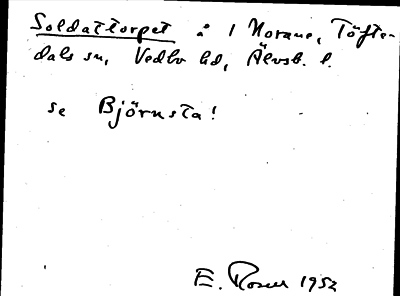 Soldattorpet å 1 Norane, Töfte-
dals sn, Vedbo hd, Älvsb. l.
se Björnsta!
E. Rosen 1952